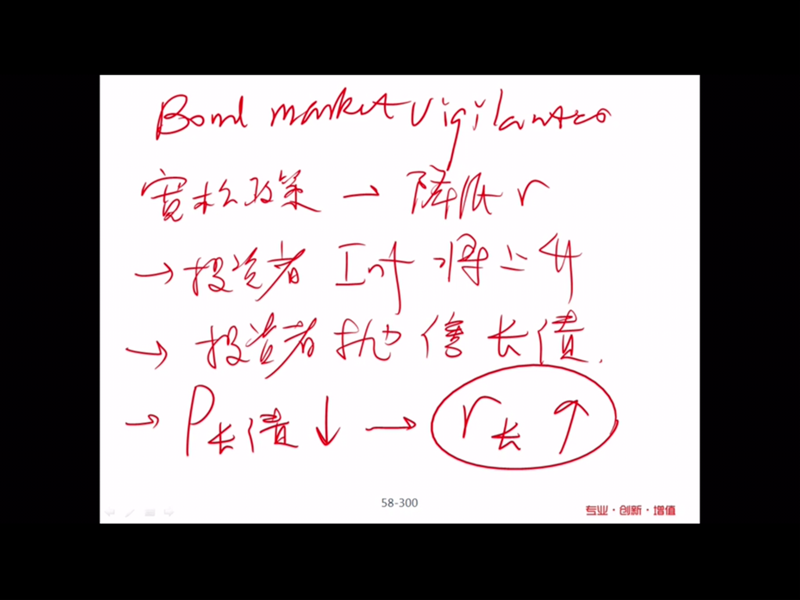 Bond market vigilantes
宽松政策 → 降低 r
→ 投资者 Inf 将上升
→ 投资者抛售长债.
→ P长债 ↓ → r长 ↑
58-300
专业·创新·增值